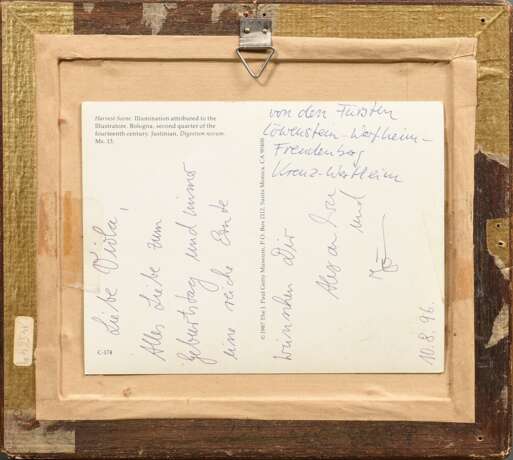 Harvest Scene. Illumination attributed to the
Illustratore. Bologna, second quarter of the
fourteenth century. Justinian, Digestum novum.
Ms. 13.
Liebe Viola,
Alles Liebe zum
Geburtstag und immer
eine reiche Ernte
C-174
© 1987 The J. Paul Getty Museum, P.O. Box 2112, Santa Monica, CA 90406
von den Fürsten
Löwenstein-Wertheim-
Freudenberg
Kreuz-Wertheim
wünschen Dir
und
10.8.96.